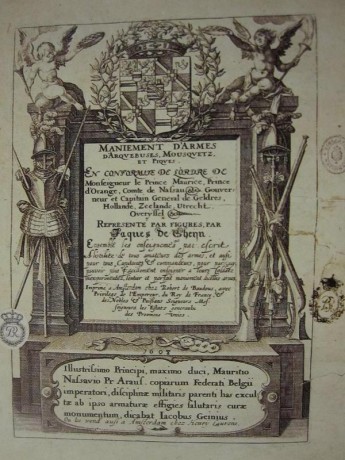 MANIEMENT D'ARMES
D'ARQVEBUSES, MOUSQVETZ,
ET PIQVES.
EN CONFORMITE DE L'ORDRE DE
Monseigneur le Prince Maurice, Prince
d'Orange, Comte de Nassau Gouver-
neur et Capitain General de Geldres,
Hollande, Zeelande, Utrecht,
Overyssel
REPRESENTE PAR FIGURES, PAR
Jaques de Gheijn
Ensemble les enseignemes par escrit
a tous amateurs des armes, et aussi
pour tous Capitaines & commandeurs, pour par
Imprime a Amsterdam chez Robert de Baudous, avec
Privilege de l'Empereur, du Roy de France, &
des Nobles & Puissans Seigneurs Mess.
Seigneurs les Estats generaulx
des Provinces Unies
1608
Illustrissimo Principi, maximo duci, Mauritio
Nassavio Pr Araus. copiarum Federati Belgii
imperatori, disciplinæ militaris parenti has excul
tæ ab ipso armaturæ effigies salutaris curæ
monumentum, dicabat Iacobus Geinius
On les vend aussi a Amsterdam chez Henry Laurens.